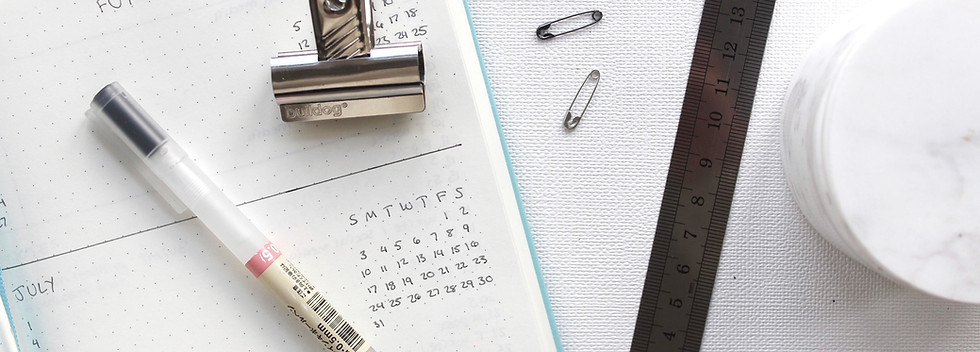 5
17 18
12
23 24 25
bulldog®
S M T W T F S
1 2
3 4 5 6 7 8 9
10 11 12 13 14 15 16
17 18 19 20 21 22 23
24 25 26 27 28 29 30
31
JULY
1
4
0.5mm
13
12
11
10
9
8
7
6
5
4